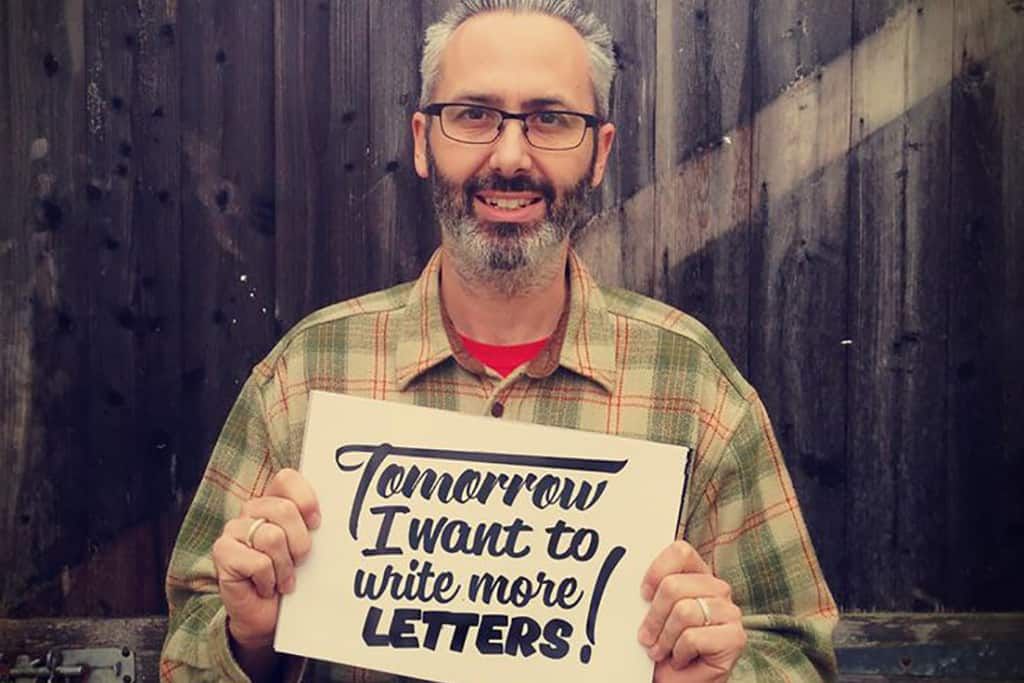 Tomorrow
I want to
write more
LETTERS!